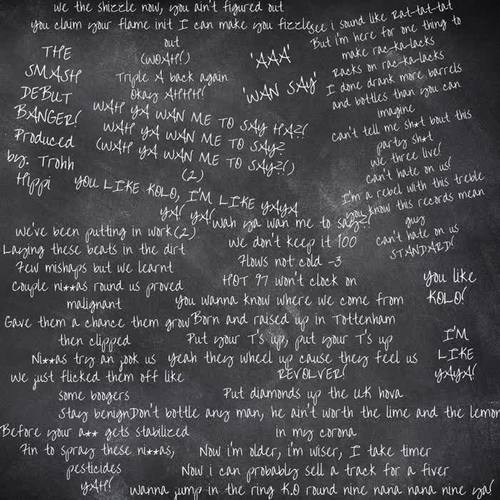 we the shizzle now, you ain't figured out
you claim your flame init I can make you fizzle
out
(WOAH!)
Triple A back again
Okay AHHH!
WAH YA WAN ME TO SAY HAZ?!
WAH YA WAN ME TO SAY?
(WAH YA WAN ME TO SAY?!)
(2)
YOU LIKE KOLO, I'M LIKE YAYA
YA! YA!
THE
SMASH
DEBUT
BANGER!
Produced
by. Trohh
Hippi
'AAA'
'WAN SAY'
see i sound like Rat-tat-tat
But i'm here for one thing to
make rac-ka-lacks
Racks on rac-ka-lacks
I done drank more barrels
and bottles than you can
imagine
can't tell me sh*t bout this
party sh*t
we three live!
can't hate on us!
I'm a rebel with this treble
you know this records mean
guy
can't hate on us
STANDARD!
we've been putting in work(2)
Laying these beats in the dirt
Few mishaps but we learnt
Couple ni**as round us proved
malignant
Gave them a chance them grow
then clipped
Ni**as try an jook us
we just flicked them off like
some boogers
Stay benign
Before your a** gets stabilized
Fin to spray these ni**as,
pesticides
YAH!
'wah ya wan me to say?!
we don't keep it 100
Flows not cold -3
HOT 97 won't clock on
You wanna know where we come from
Born and raised up in Tottenham
Put your T's up, put your T's up
Yeah they wheel up cause they feel us
REVOLVER!
Put diamonds up the UK hova
Don't bottle any man, he ain't worth the lime and the lemon
in my corona
Now i'm older, i'm wiser, I take timer
Now i can probably sell a track for a fiver
wanna jump in the ring K.O round nine nana nana nine ya!
you like
KOLO!
I'M
LIKE
YAYA!